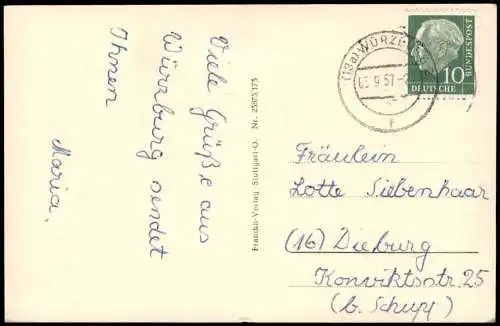 Viele Grüße aus
Würzburg sendet
Ihnen
Maria.
Franckh-Verlag Stuttgart-O. Nr. 25855/175
(13a) WÜRZBURG
9.57
f
10
DEUTSCHE
BUNDESPOST
Fräulein
Lotte Siebenhaar
(16) Dieburg
Konviktsstr. 25
(b. Schupp)